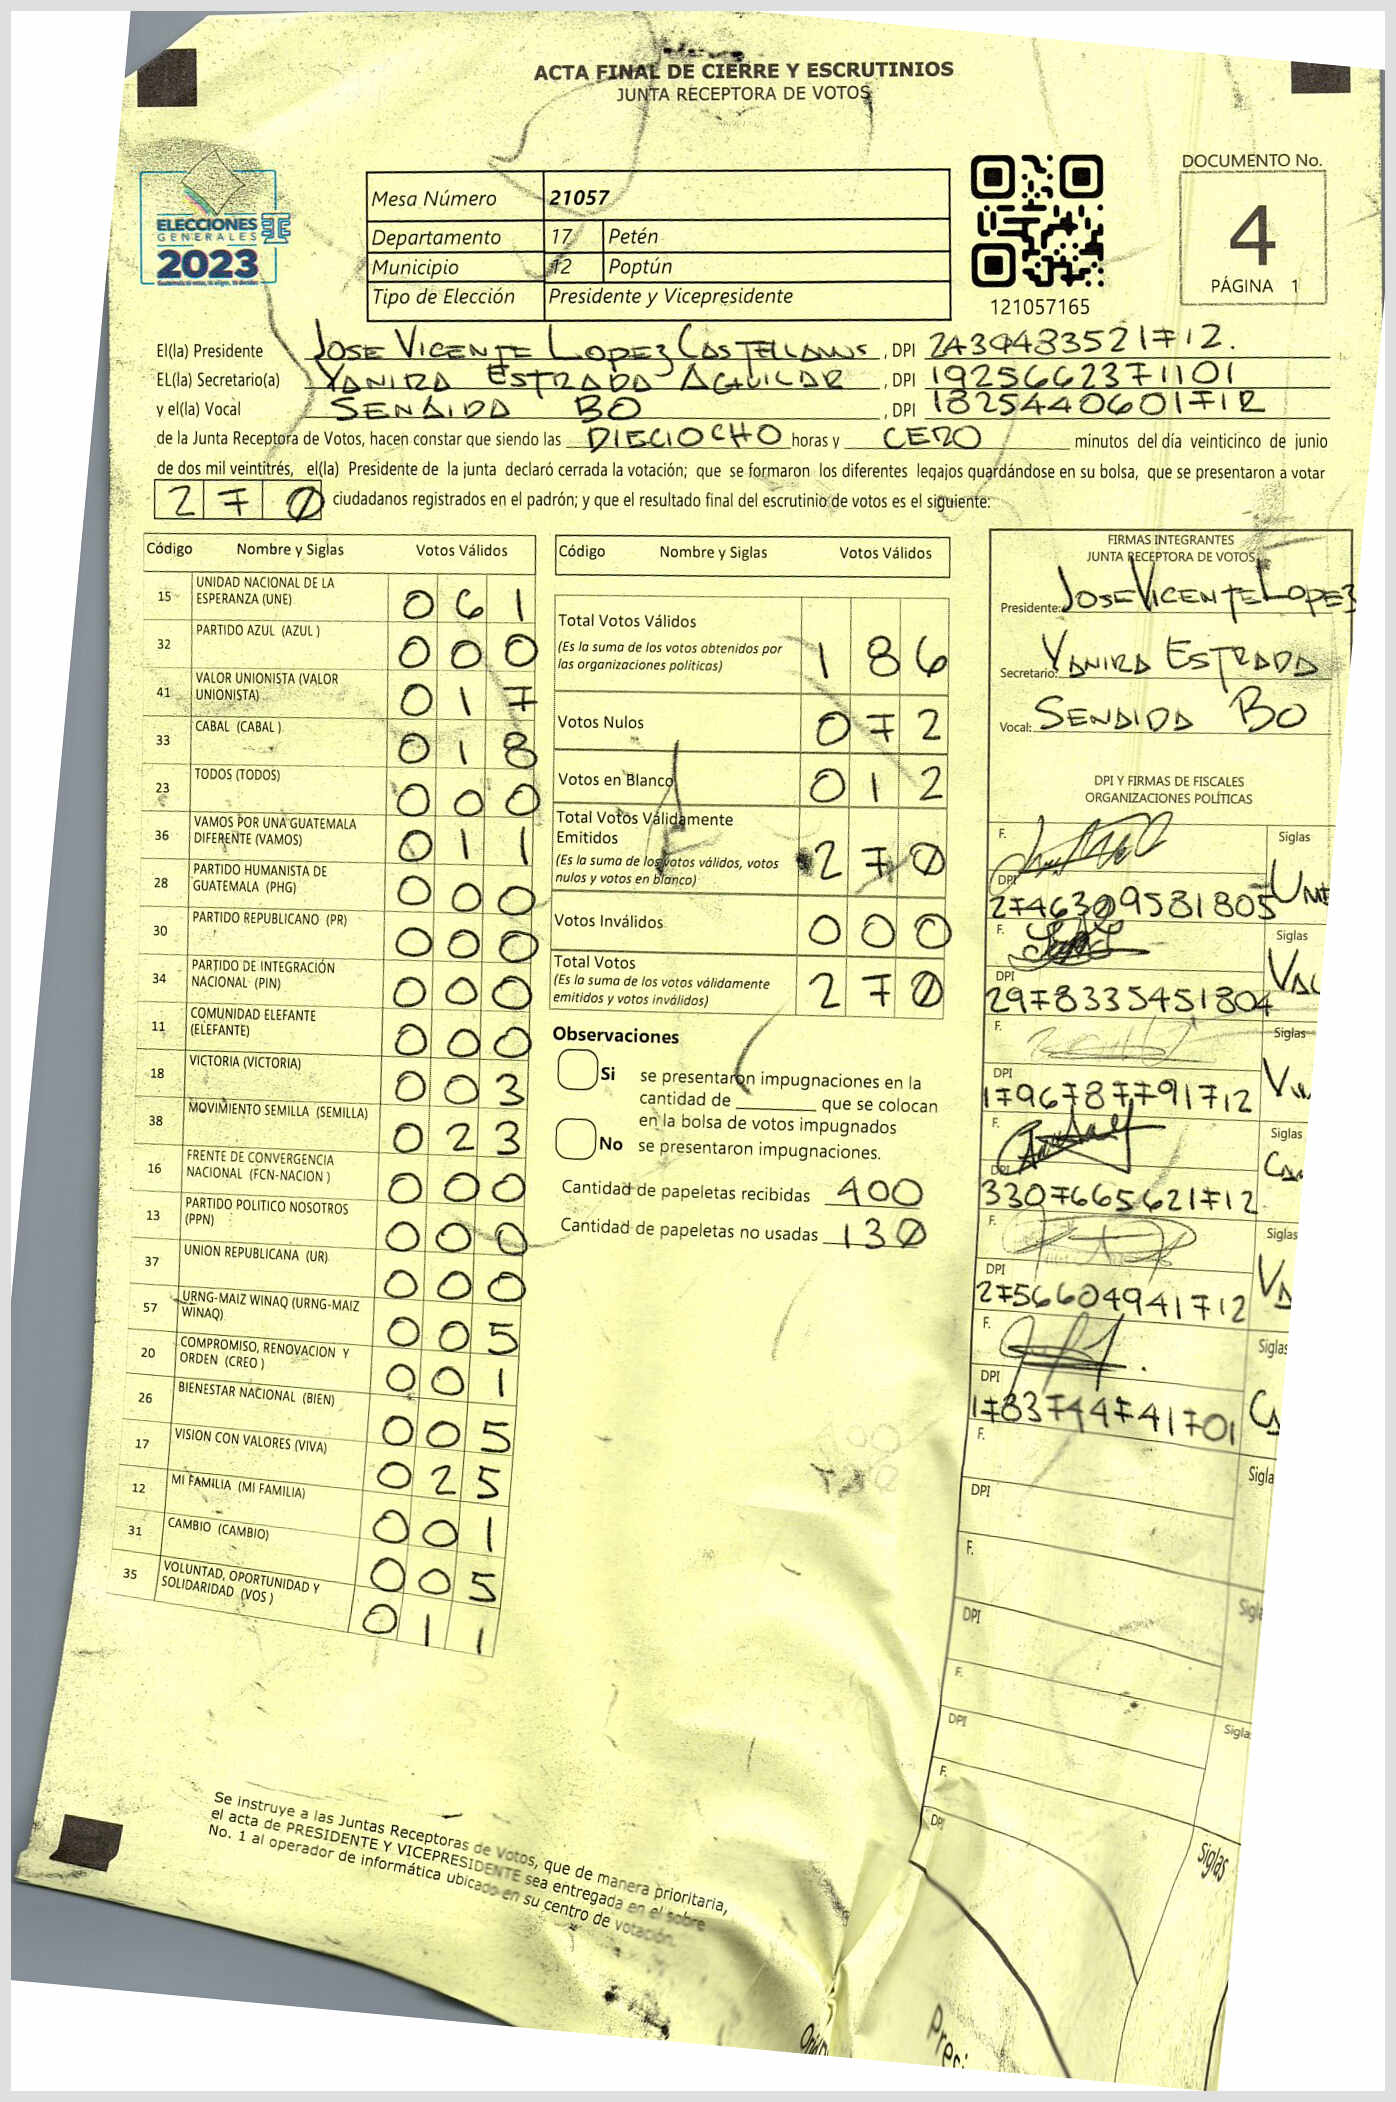 ACTA FINAL DE CIERRE Y ESCRUTINIOS
JUNTA RECEPTORA DE VOTOS
ELECCIONES
GENERALES
2023
Mesa Número 21057
Departamento 17 Petén
Municipio 12 Poptún
Tipo de Elección Presidente y Vicepresidente
121057165
DOCUMENTO No.
4
PÁGINA 1
El(la) Presidente JOSE VICENTE LOPEZ CASTELLANOS, DPI 2439483521712.
EL(la) Secretario(a) YANIRA ESTRADA AGUILAR, DPI 1925662371101
y el(la) Vocal SENDIDA BO, DPI 1825440601712
de la Junta Receptora de Votos, hacen constar que siendo las DIECIOCHO horas y CERO minutos del día veinticinco de junio
de dos mil veintitrés, el(la) Presidente de la junta declaró cerrada la votación; que se formaron los diferentes legajos guardándose en su bolsa, que se presentaron a votar
270 ciudadanos registrados en el padrón; y que el resultado final del escrutinio de votos es el siguiente:
Código Nombre y Siglas Votos Válidos
15 UNIDAD NACIONAL DE LA ESPERANZA (UNE) 061
32 PARTIDO AZUL (AZUL ) 000
41 VALOR UNIONISTA (VALOR UNIONISTA) 017
33 CABAL (CABAL ) 018
23 TODOS (TODOS) 000
36 VAMOS POR UNA GUATEMALA DIFERENTE (VAMOS) 011
28 PARTIDO HUMANISTA DE GUATEMALA (PHG) 000
30 PARTIDO REPUBLICANO (PR) 000
34 PARTIDO DE INTEGRACIÓN NACIONAL (PIN) 000
11 COMUNIDAD ELEFANTE (ELEFANTE) 000
18 VICTORIA (VICTORIA) 003
38 MOVIMIENTO SEMILLA (SEMILLA) 023
16 FRENTE DE CONVERGENCIA NACIONAL (FCN-NACION ) 000
13 PARTIDO POLITICO NOSOTROS (PPN) 000
37 UNION REPUBLICANA (UR) 000
57 URNG-MAIZ WINAQ (URNG-MAIZ WINAQ) 005
20 COMPROMISO, RENOVACION Y ORDEN (CREO ) 001
26 BIENESTAR NACIONAL (BIEN) 005
17 VISION CON VALORES (VIVA) 025
12 MI FAMILIA (MI FAMILIA) 001
31 CAMBIO (CAMBIO) 005
35 VOLUNTAD, OPORTUNIDAD Y SOLIDARIDAD (VOS ) 011
Código Nombre y Siglas Votos Válidos
Total Votos Válidos 186
(Es la suma de los votos obtenidos por
las organizaciones políticas)
Votos Nulos 072
Votos en Blanco 012
Total Votos Válidamente
Emitidos 270
(Es la suma de los votos válidos, votos
nulos y votos en blanco)
Votos Inválidos 000
Total Votos 270
(Es la suma de los votos válidamente
emitidos y votos inválidos)
Observaciones
Si se presentaron impugnaciones en la
cantidad de ________ que se colocan
en la bolsa de votos impugnados
No se presentaron impugnaciones.
Cantidad de papeletas recibidas 400
Cantidad de papeletas no usadas 130
FIRMAS INTEGRANTES
JUNTA RECEPTORA DE VOTOS
Presidente: JOSE VICENTE LOPEZ
Secretario: YANIRA ESTRADA
Vocal: SENDIDA BO
DPI Y FIRMAS DE FISCALES
ORGANIZACIONES POLÍTICAS
F. Siglas
DPI 2746309581805 UNE
F. Siglas
DPI 2978335451804
F. Siglas
DPI 1796787791712
F. Siglas
DPI 3307665621712
F. Siglas
DPI 2756604941712
F. Siglas
DPI 1783744741701
F.
DPI
F.
DPI
F.
DPI
F.
DPI
Siglas
Se instruye a las Juntas Receptoras de Votos, que de manera prioritaria,
el acta de PRESIDENTE Y VICEPRESIDENTE sea entregada en el sobre
No. 1 al operador de informática ubicado en su centro de votación.